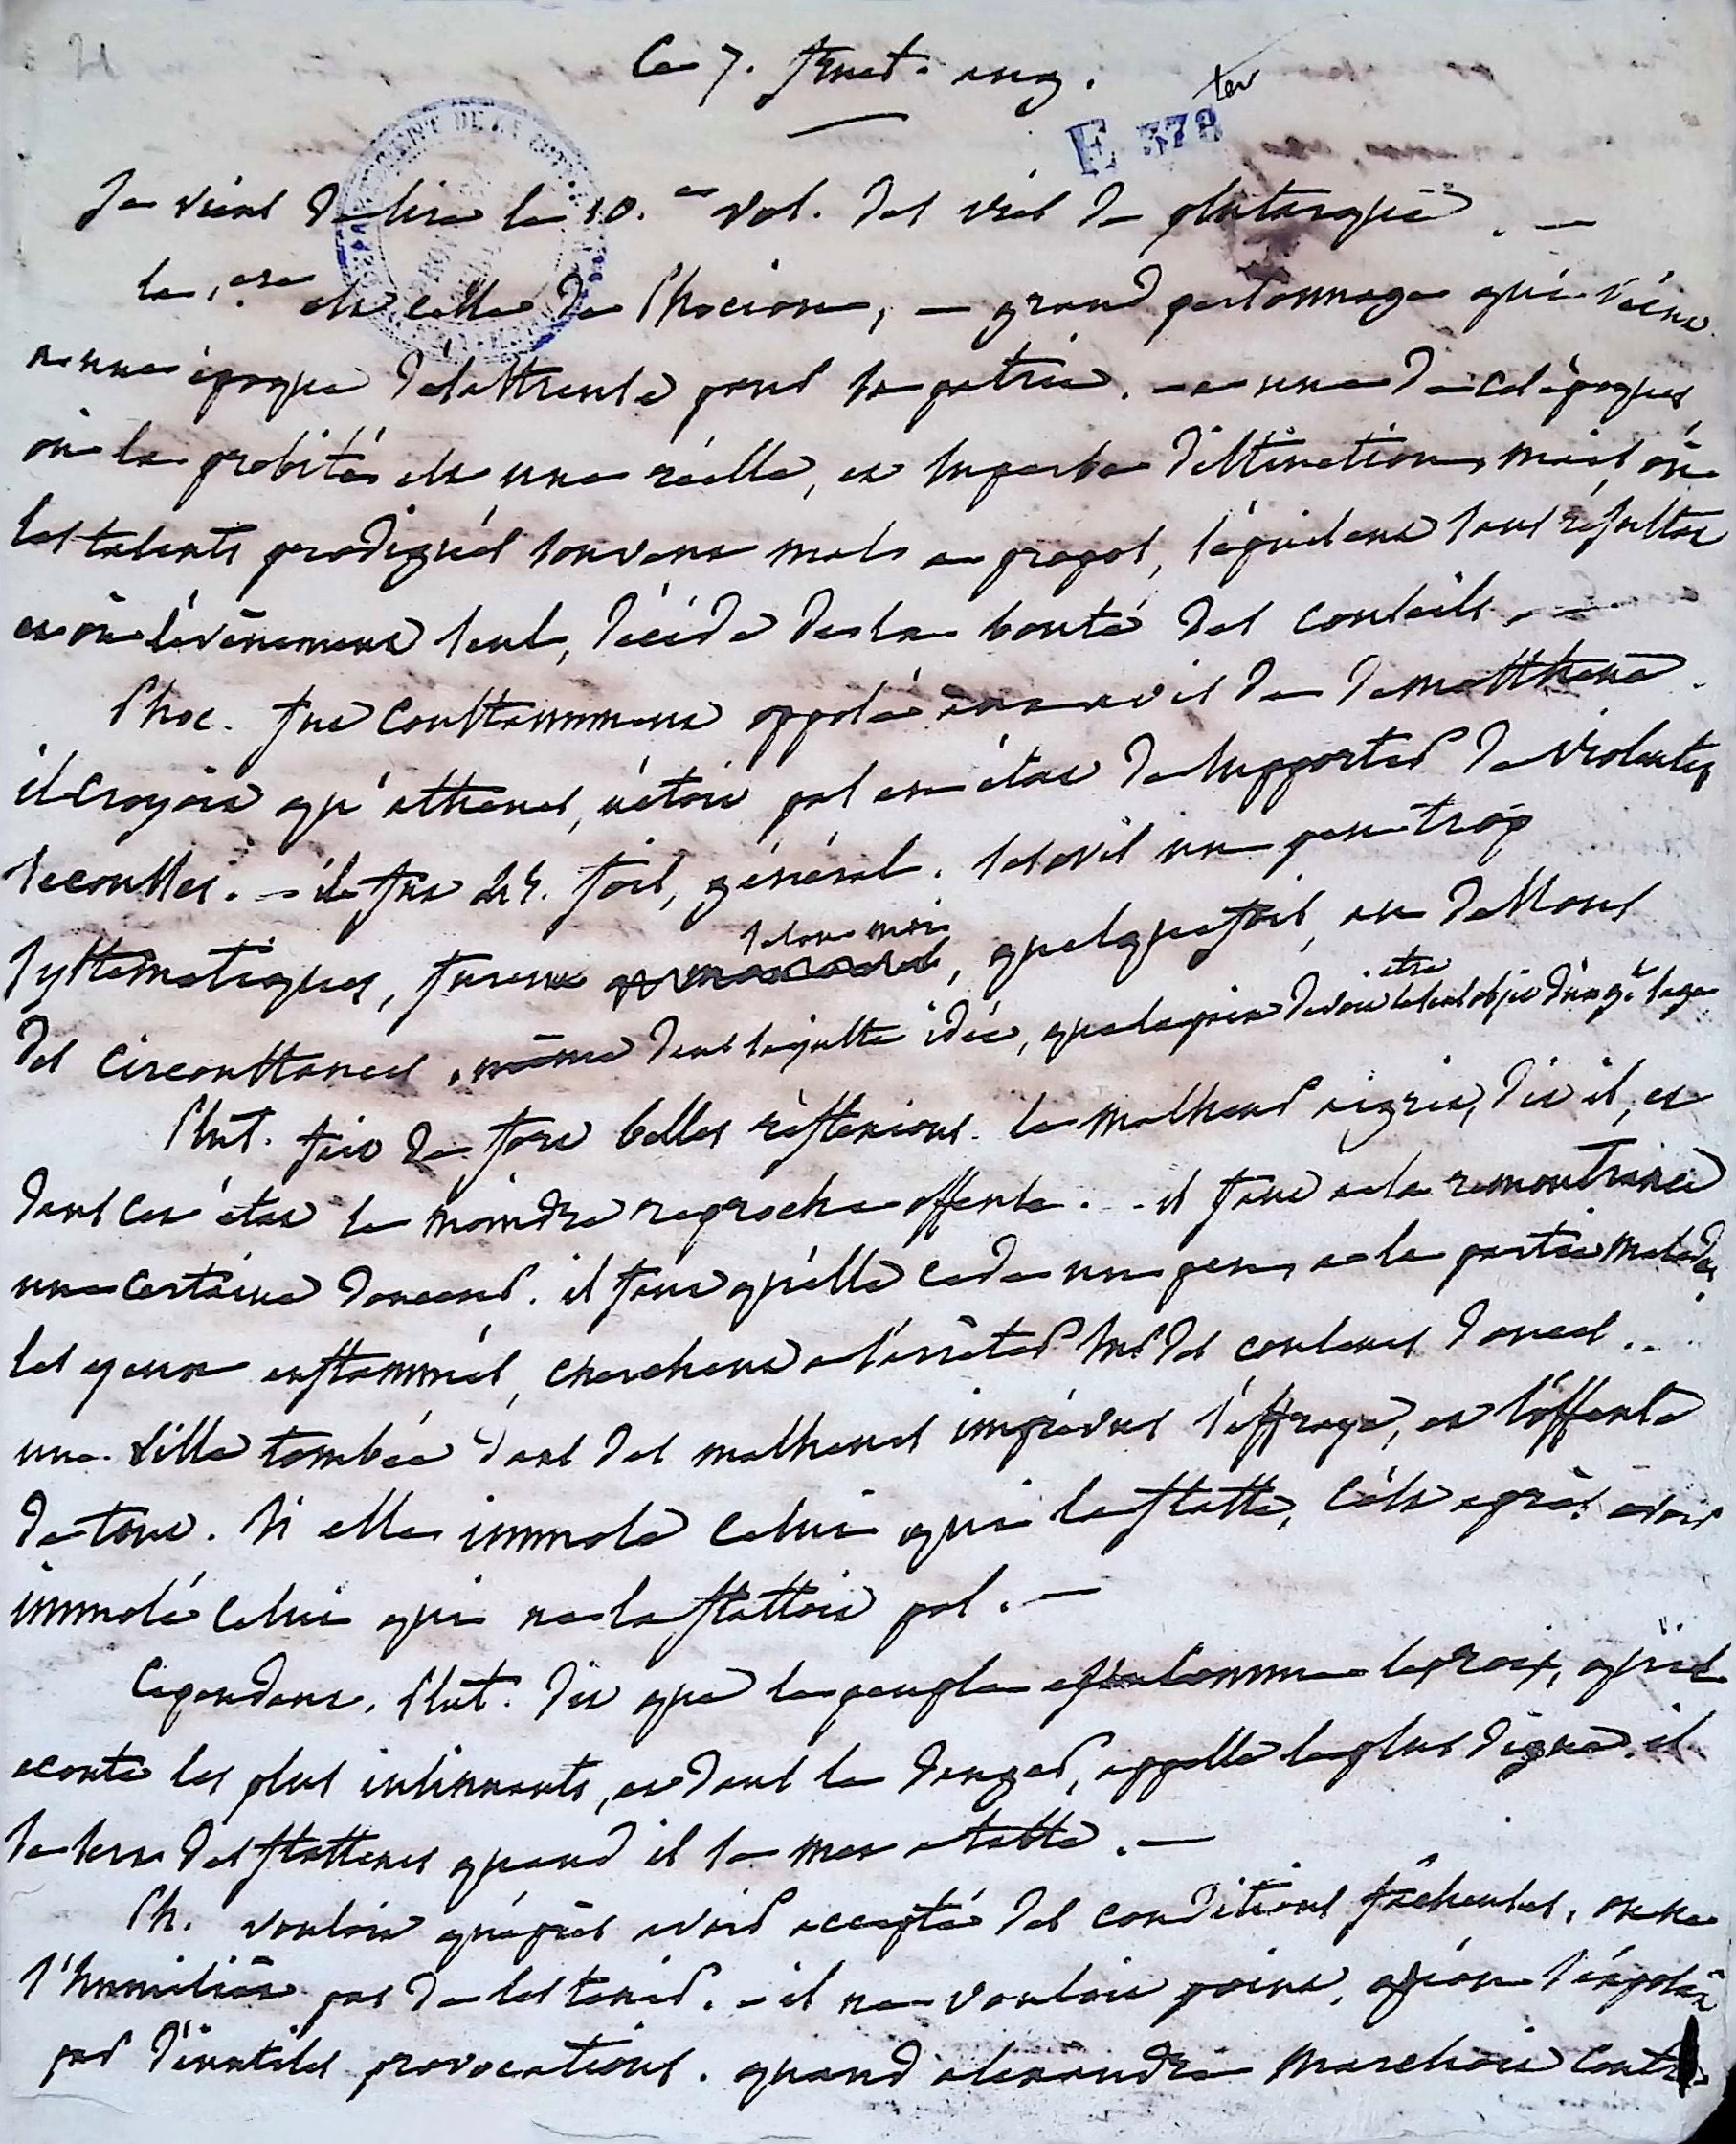 21
Ce 7. fruct. an 9.
ter
E 378
Je viens de lire le 10.e vol. des vies de plutarque. —
la 1.ere est celle de Phocion, — grand personnage qui vécut
a une époque désastreuse pour sa patrie. — a une de ces époques,
où la probité est une réelle, et superbe distinction, mais où
les talents prodigués souvent mal a propos, s'épuisent sans résultat
et où l'évènement seul, décide de la bonté des conseils. —
Phoc. fut constamment opposé aux avis de Demosthene.
il croyoit qu'athenes, n'étoit pas en état de supporter de violentes
secousses. — il fut 45. fois, général. ses avis un peu trop
systematiques, furent selon moi, quelquefois, au dessous
des circonstances, même dans la juste idée, que la paix devoit être le seul objet d'un g.t sage
Plut. fait de fort belles réflexions. le malheur aigrit, dit il, et
dans cet état le moindre reproche offense... il faut a la remontrance
une certaine douceur. il faut qu'elle cede un peu, a la partie malade,
les yeux enflammés, cherchent a s'arrêter sur des couleurs douces...
une ville tombée dans des malheurs imprévus s'effraye, et s'offense
de tout. si elle immole celui qui la flatte, c'est après avoir
immolé celui qui ne la flattoit pas. —
Cependant, Plut. dit que le peuple est comme les rois, qu'il
ecoute les plus insinuants, et dans le danger, appelle le plus digne. il
se sert des flatteurs quand il se met a table. —
Ph. vouloit qu'après avoir accepté des conditions fâcheuses, on ne
s'humiliât pas de les tenir. — il ne vouloit point, qu'on s'exposât
par d'inutiles provocations. quand alexandre marchoit contre